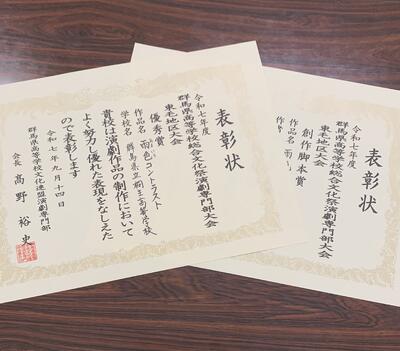 表彰状
令和七年度
群馬県高等学校総合文化祭演劇専門部大会
東毛地区大会
優秀賞
作品名 雨色コントラスト
学校名 群馬県立桐生高等学校
貴校は演劇作品の制作において
よく努力し優れた表現をなしえた
ので表彰します
令和七年九月十四日
群馬県高等学校文化連盟演劇専門部
会長 高野 裕史
表彰状
令和七年度
群馬県高等学校総合文化祭演劇専門部
東毛地区大会
創作脚本賞
作品名 雨